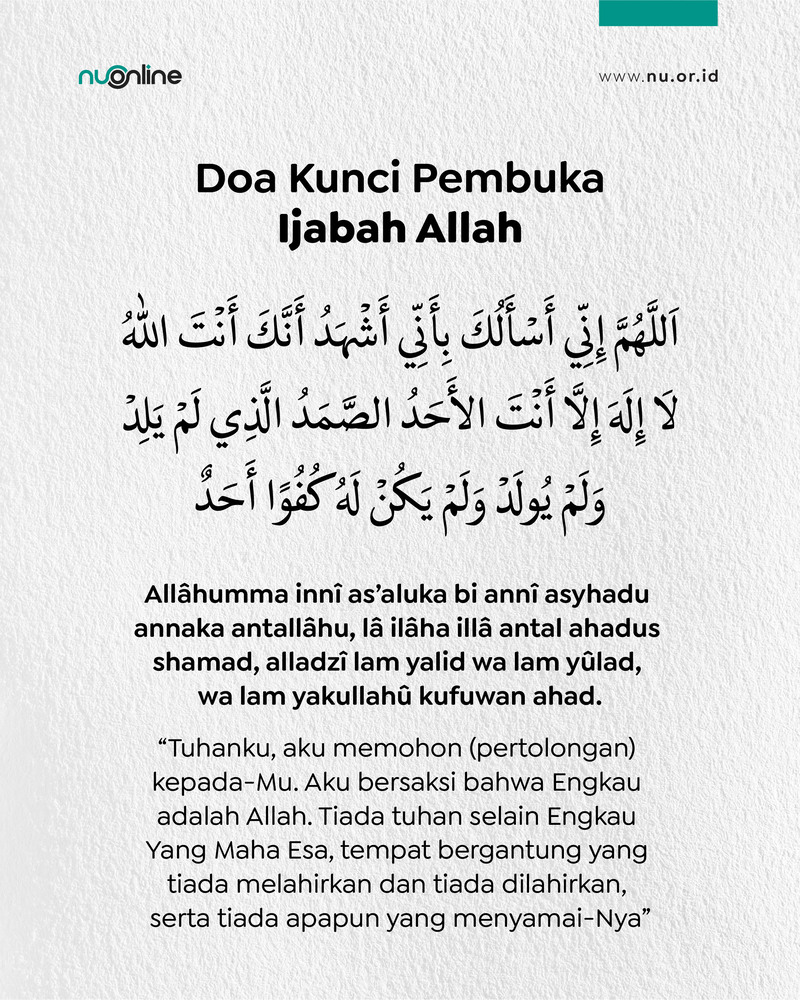 nuonline
www.nu.or.id
Doa Kunci Pembuka
Ijabah Allah
اَللَّهُمَّ إِنِّي أَسْأَلُكَ بِأَنِّي أَشْهَدُ أَنَّكَ أَنْتَ اللهُ
لَا إِلَهَ إِلَّا أَنْتَ الأَحَدُ الصَّمَدُ الَّذِي لَمْ يَلِدْ
وَلَمْ يُولَدْ وَلَمْ يَكُنْ لَهُ كُفُوًا أَحَدٌ
Allâhumma innî as’aluka bi annî asyhadu
annaka antallâhu, lâ ilâha illâ antal ahadus
shamad, alladzî lam yalid wa lam yûlad,
wa lam yakullahû kufuwan ahad.
“Tuhanku, aku memohon (pertolongan)
kepada-Mu. Aku bersaksi bahwa Engkau
adalah Allah. Tiada tuhan selain Engkau
Yang Maha Esa, tempat bergantung yang
tiada melahirkan dan tiada dilahirkan,
serta tiada apapun yang menyamai-Nya”